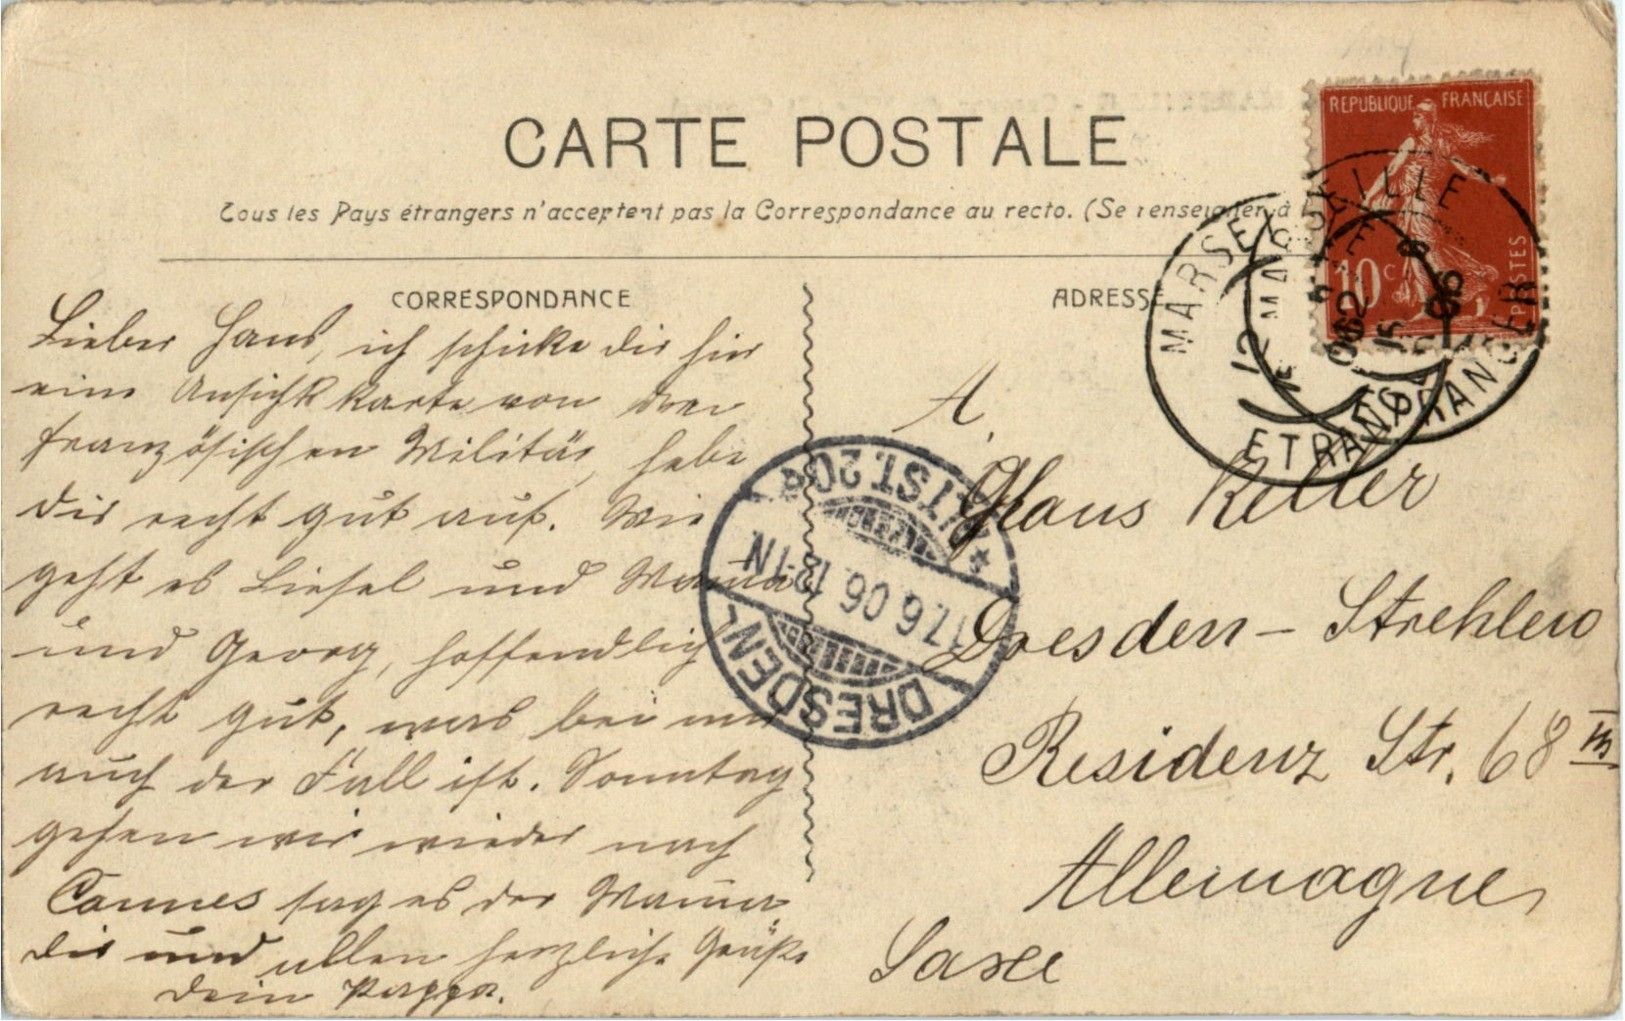 CARTE POSTALE
Tous les Pays étrangers n'acceptent pas la Correspondance au recto. (Se renseigner à
CORRESPONDANCE
Lieber Hans, ich schicke dir hier
eine Ansichtskarte von dem
französischen Militär, hebe
dir recht gut auf. Wie
geht es Liesel und Mama
und Georg, hoffendlich
recht gut, was bei mir
auch der Fall ist. Sonntag
gehen wir wieder nach
Cannes sag es der Mama
dir und allen herzliche Grüße
dein Pappa.
ADRESSE
A.
Hans Keller
Dresden - Strehlen
Residenz Str. 68 III
Allemagne,
Saxe
REPUBLIQUE FRANÇAISE
10 c
POSTES
MARSEILLE
ETRANGER
MARSEILLE
ETRANGER
DRESDEN-
17.6.06. 12-1N
ALTST. 20